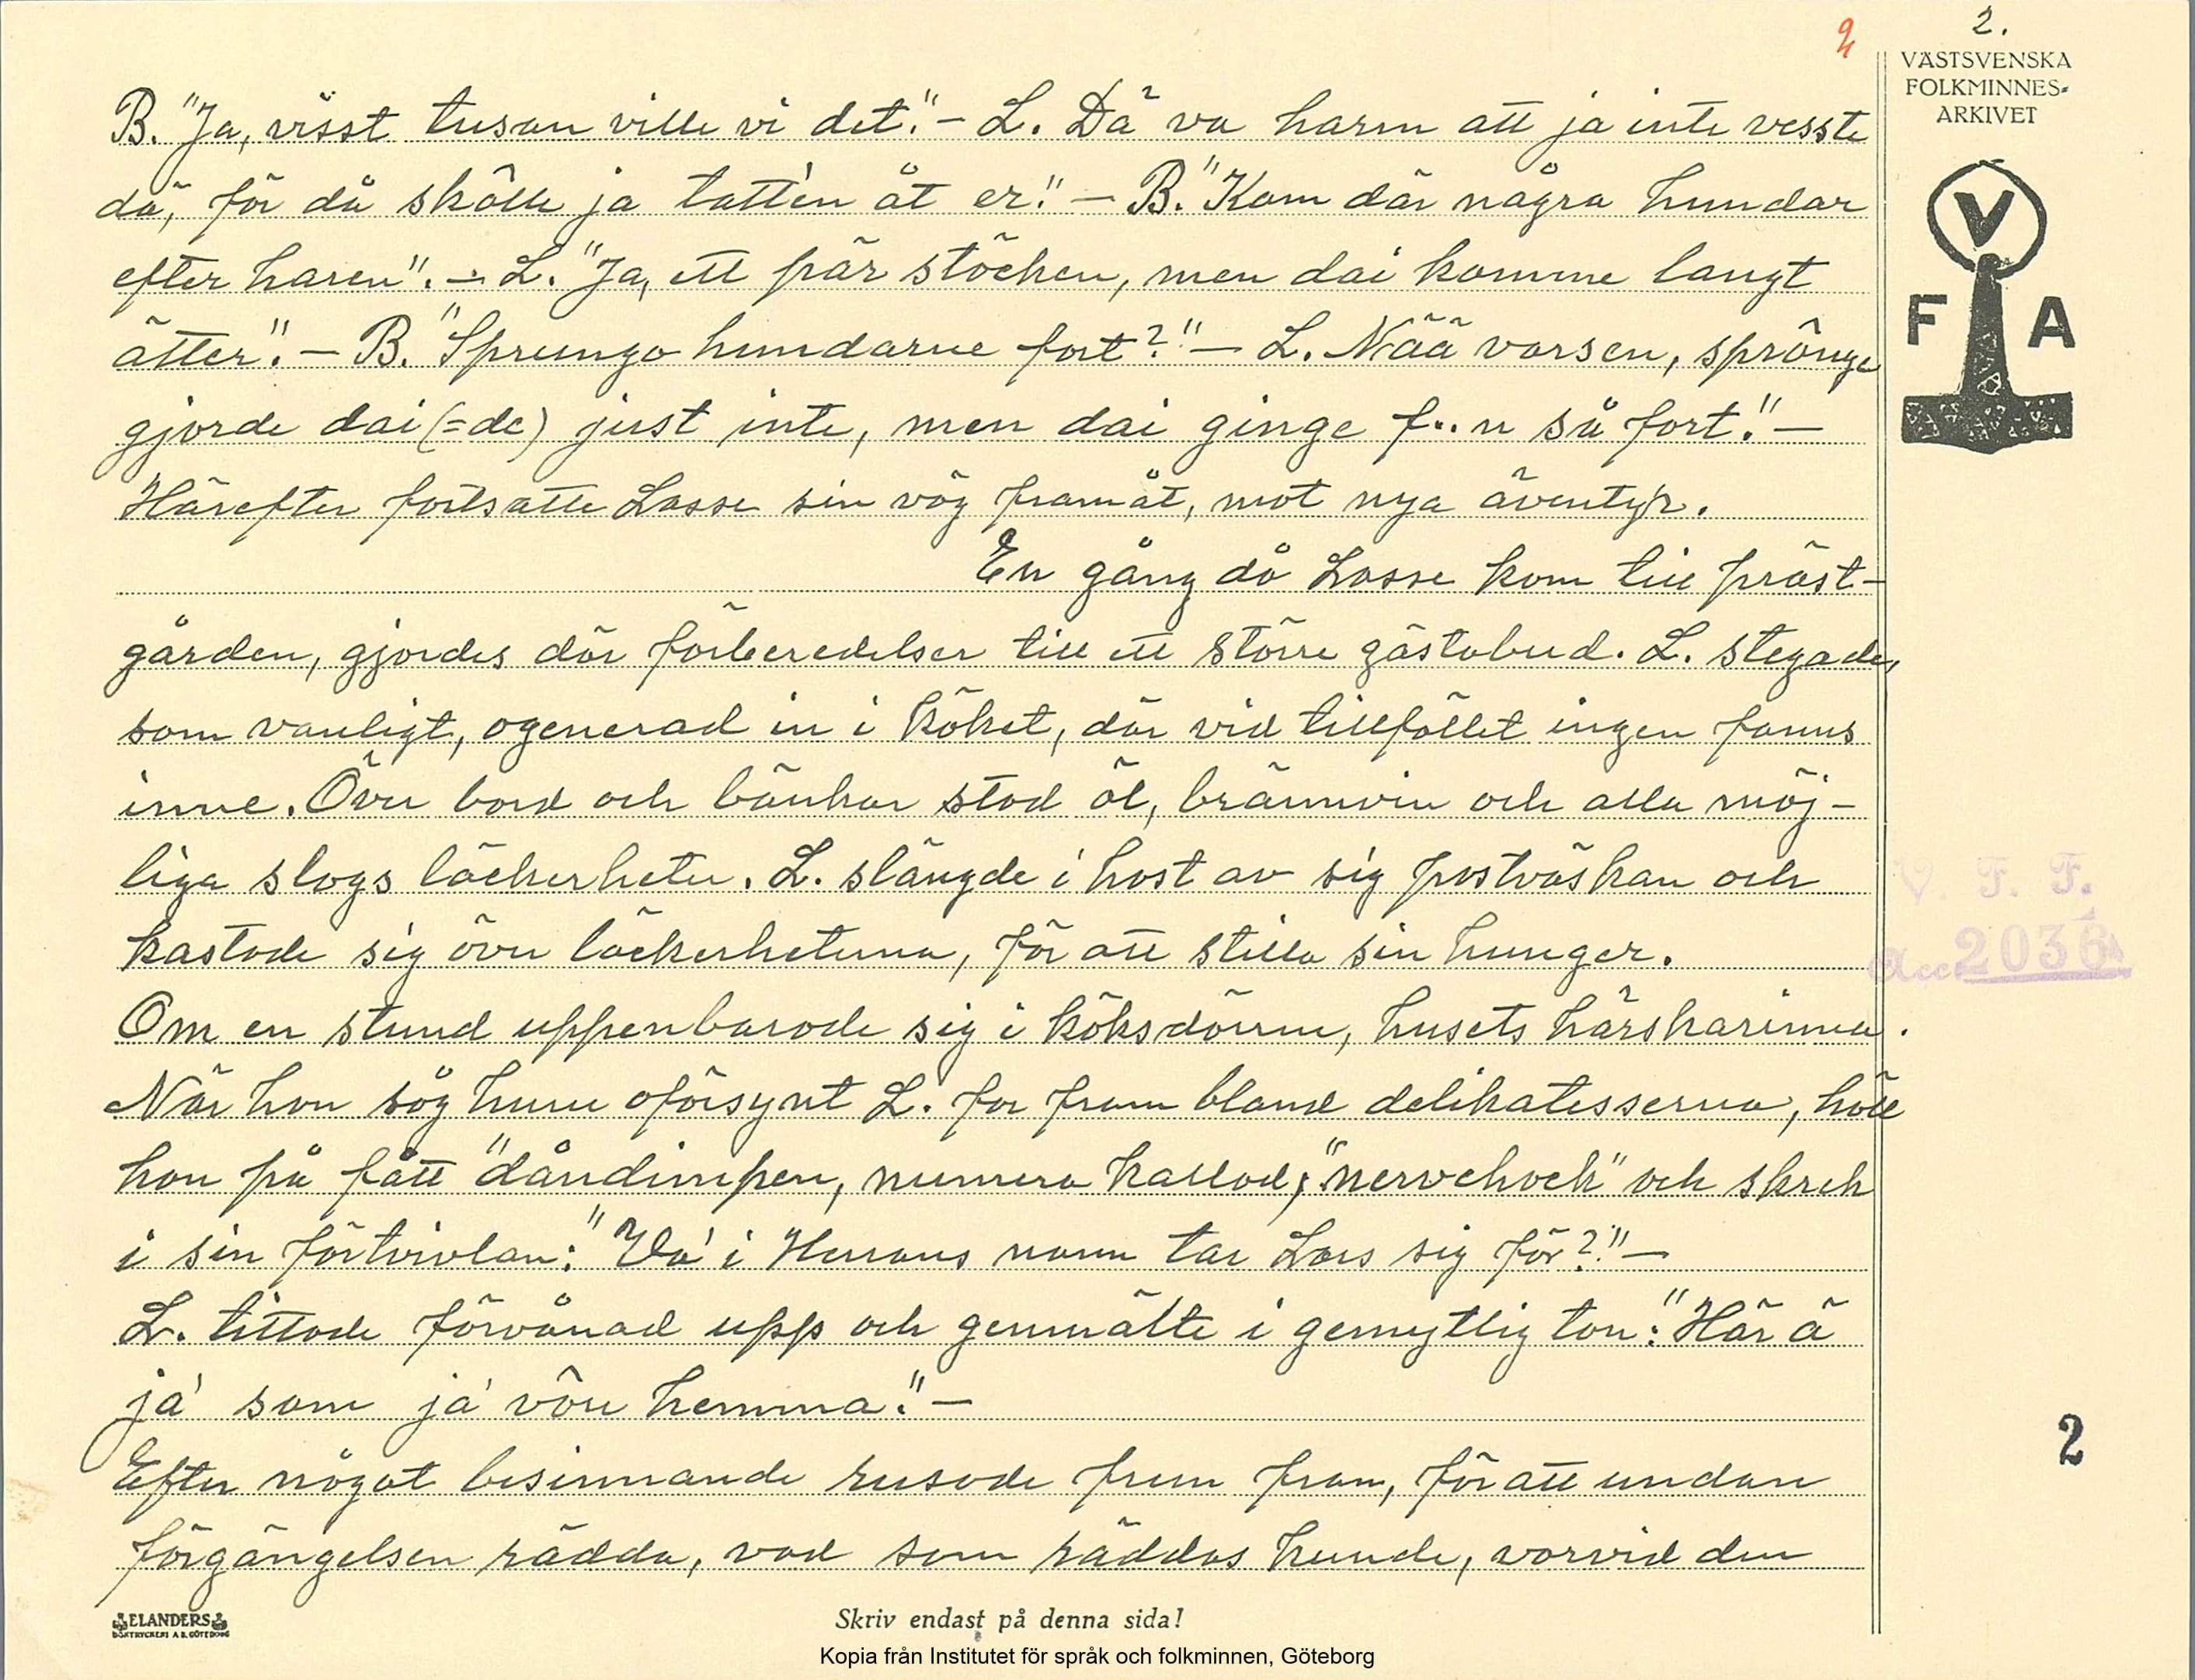 2.
2
VÄSTSVENSKA
FOLKMINNES=
ARKIVET
V
F A
B. "Ja, visst tusan ville vi det." - L. Dä va harm att ja inte vesste
dä, för då skôlle ja tatt'en åt er." - B. "Kom där några hundar
efter haren". - L. "Ja, ett pär stöcken, men dai komme langt
ätter." - B. "Sprungo hundarne fort?" - L. Nää vorsen, sprônge
gjorde dai (=de) just inte, men dai ginge f..n så fort." -
Härefter fortsatte Lasse sin väg framåt, mot nya äventyr.
En gång då Lasse kom till präst-
gården, gjordes där förberedelser till ett större gästabud. L. stegade,
som vanligt, ogenerad in i köket, där vid tillfället ingen fanns
inne. Över bord och bänkar stod öl, brännvin och alla möj-
liga slags läckerheter. L. slängde i hast av sig postväskan och
kastade sig över läckerheterna, för att stilla sin hunger.
Om en stund uppenbarade sig i köksdörrn, husets härskarinna.
När hon såg huru oförsynt L. for fram bland delikatesserna, höll
hon på fått "dåndimpen, numera kallad, "nervchock" och skrek
i sin förtvivlan: "Va' i Herrans namn tar Lars sig för?" -
L. tittade förvånad upp och genmälte i gemytlig ton: "Här ä
ja' som ja' vôre hemma." -
Efter något besinnande rusade frun fram, för att undan
förgängelsen rädda, vad som räddas kunde, varvid den
V. F. F.
Acc. 2036
2
ELANDERS
BOKTRYCKERI A.B. GÖTEBORG
Skriv endast på denna sida!
Kopia från Institutet för språk och folkminnen, Göteborg